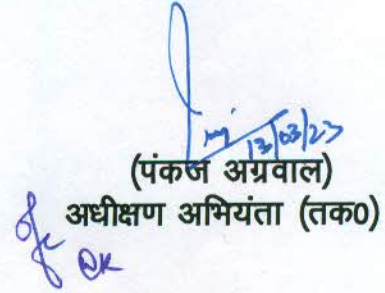 13/03/23
(पंकज अग्रवाल)
अधीक्षण अभियंता (तक0)